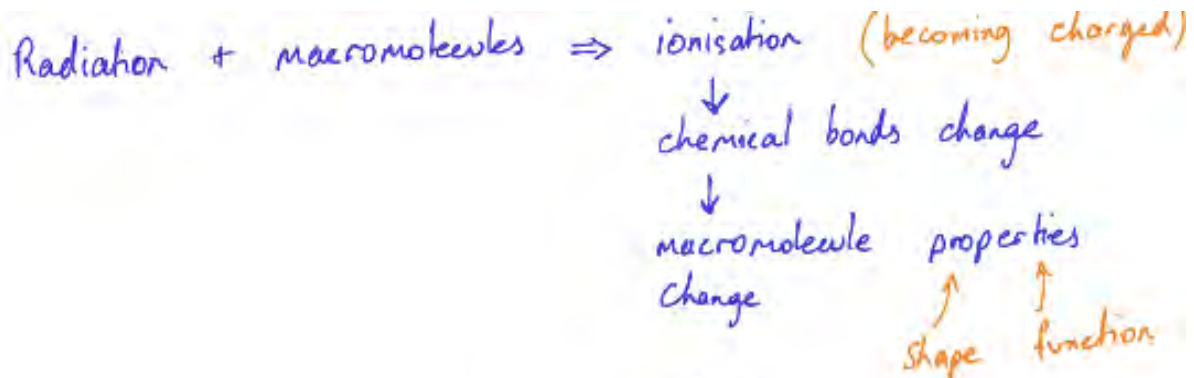 Radiation + macromolecules ⇒ ionisation (becoming charged)
↓
chemical bonds change
↓
macromolecule properties
change
shape function